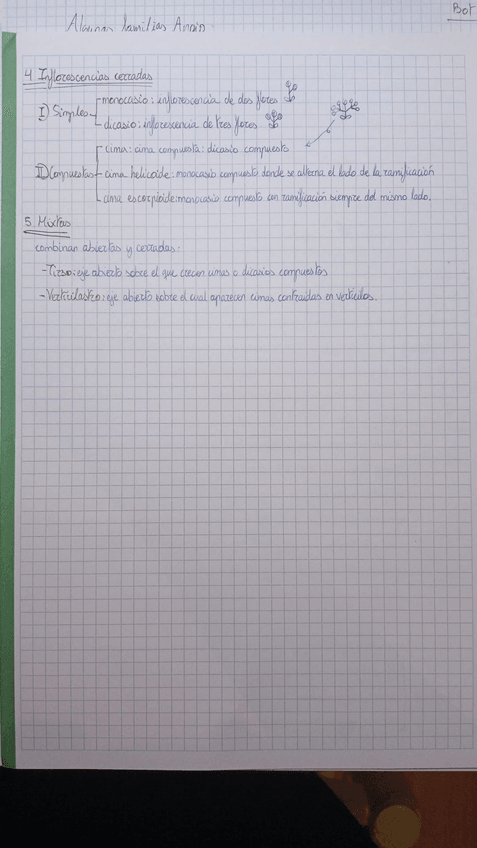 Bot
Algunas familias
4. Inflorescencias cerradas
I) Simples
monocasio: inflorescencia de dos flores
dicasio: inflorescencia de tres flores
II) Compuestas
cima: cima compuesta: dicasio compuesto
cima helicoide: monocasio compuesto donde se alterna el lado de la ramificación
cima escorpioide: monocasio compuesto con ramificación siempre del mismo lado.
5. Mixtas
combinan abiertas y cerradas:
- Tirso: eje abierto sobre el que crecen cimas o dicasios compuestos
- Verticilastro: eje abierto sobre el cual aparecen cimas contraidas en verticilos.